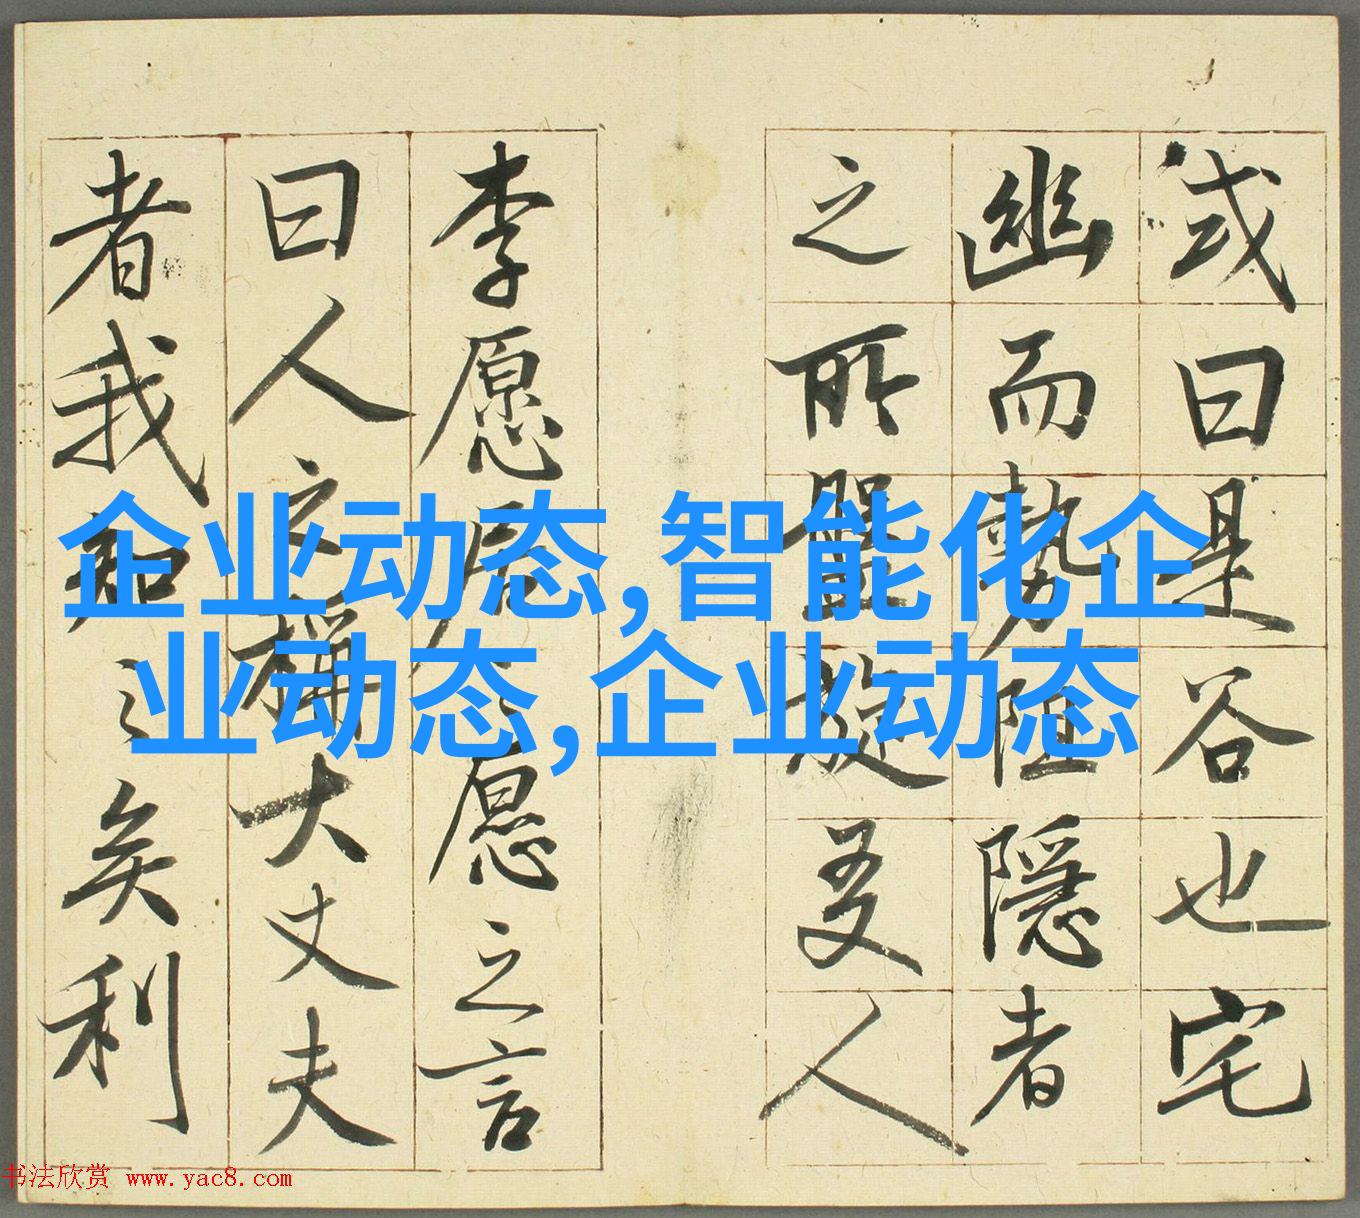 或曰是谷也宅
幽而勢阻隱者
之所盤旋友人
李愿居之愿之言
曰人之稱大丈夫
者我知之矣利
企业动态,智能化企
业动态,企业动态
书法欣赏 www.yac8.com